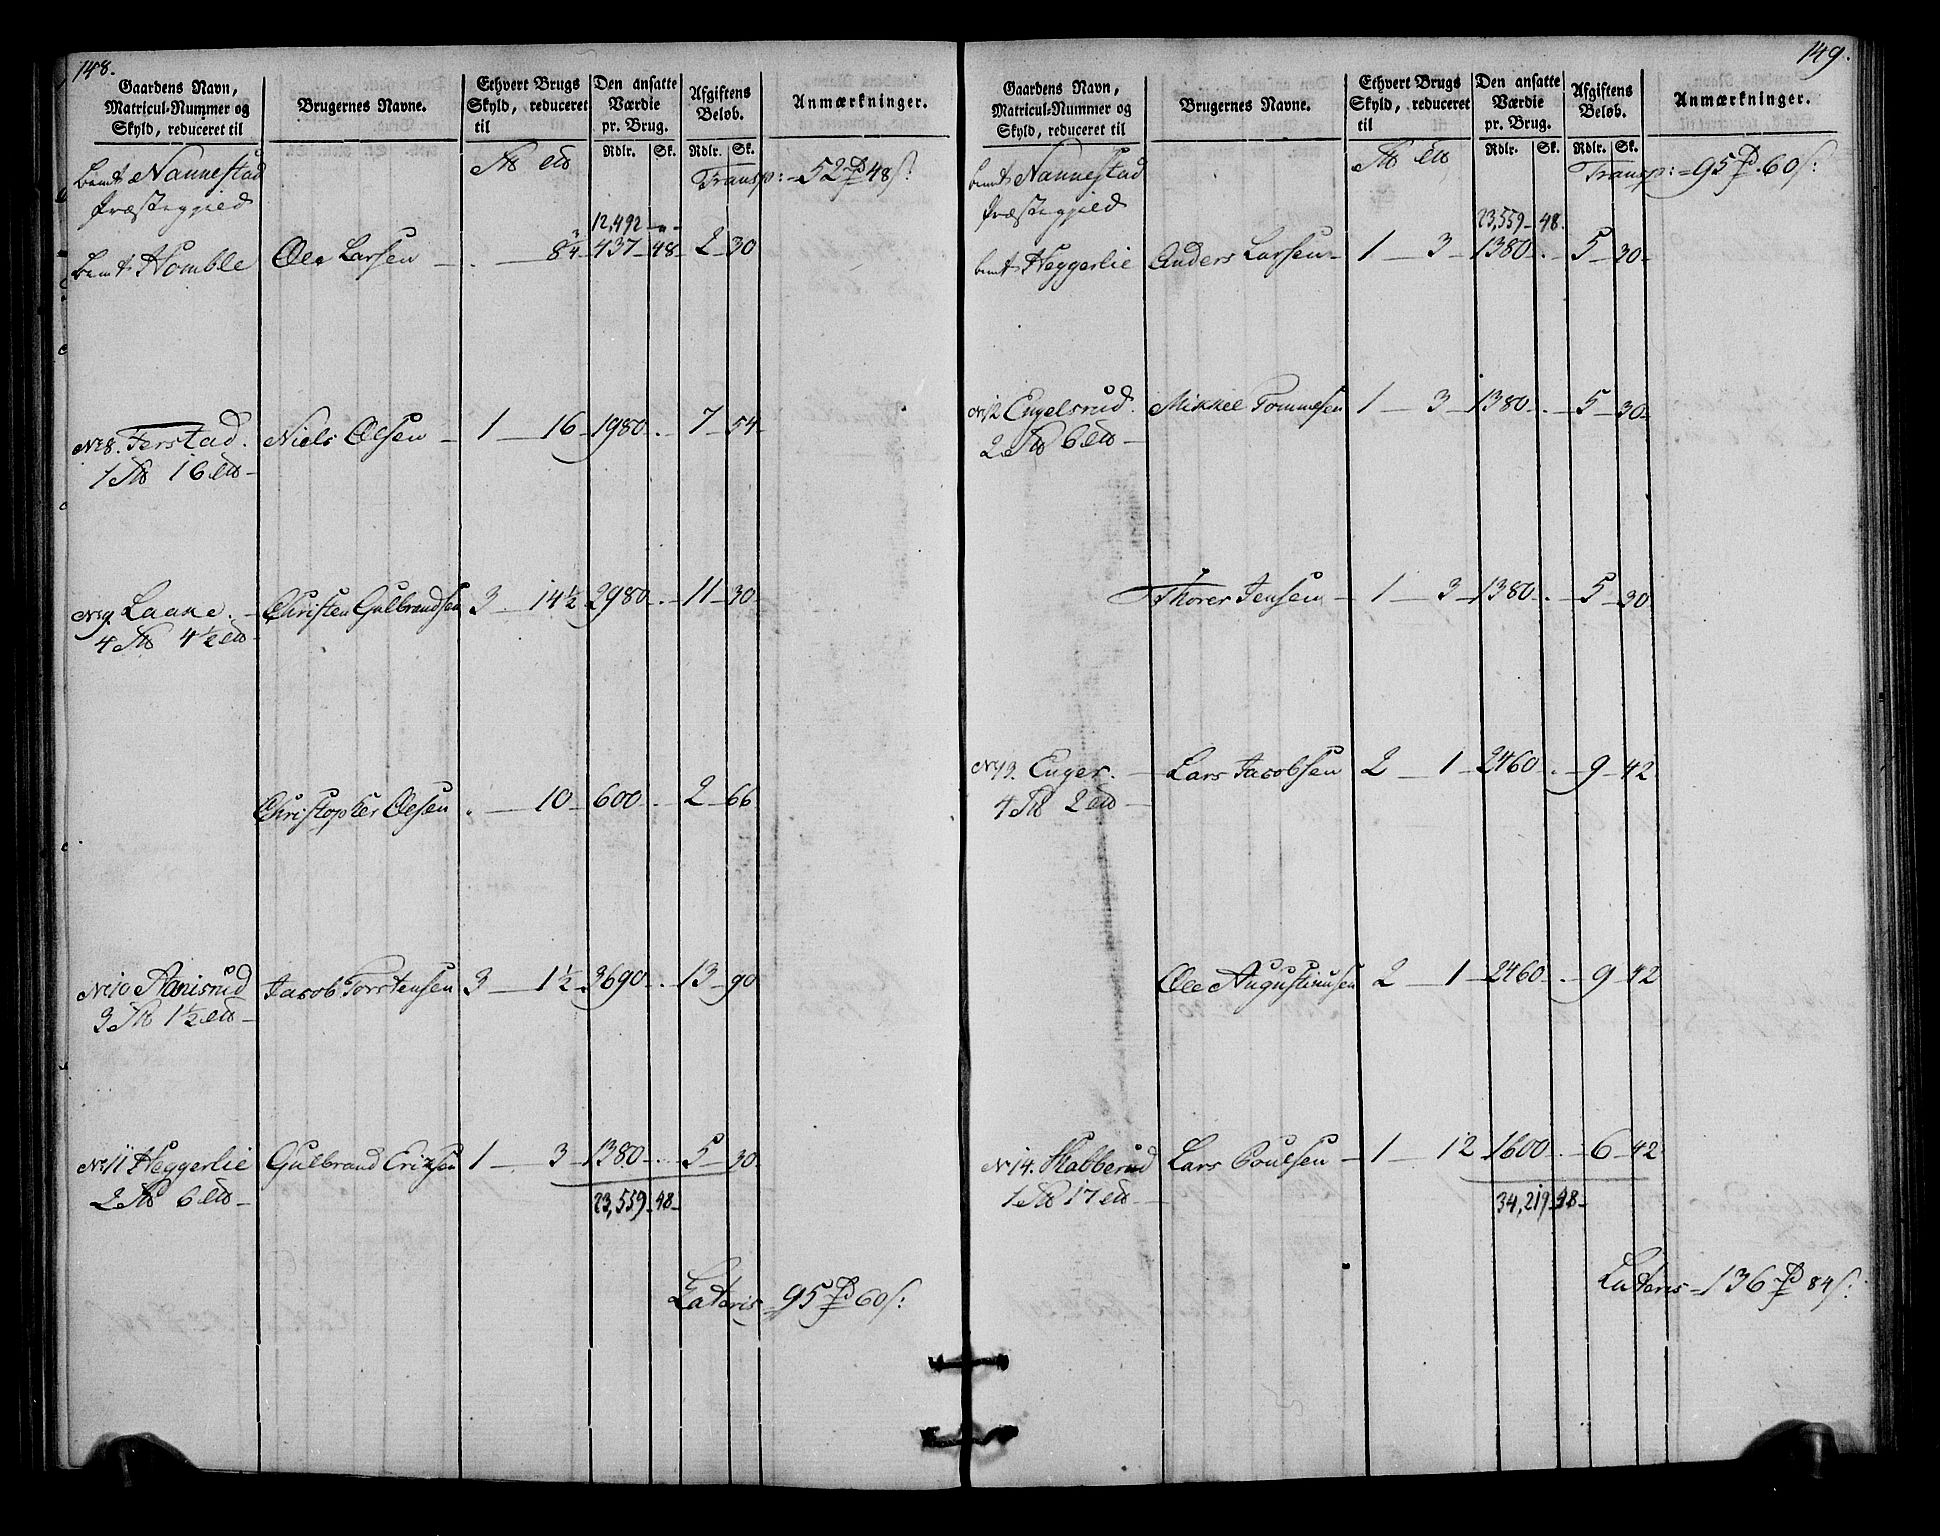 148.
Gaardens Navn, Matricul-Nummer og Skyld, reduceret til | Brugernes Navne. | Ethvert Brugs Skyld, reduceret til | Den ansatte Værdie pr. Brug. Rdlr. Sk. | Afgiftens Beløb. Rdlr. Sk. | Anmærkninger.
bemte Nannestad Præstegjeld
Transp: 52 48 s.
12,492
bemte Homble Ole Larsen 8 3/4 437 48 2 30
No 8. Ferstad. Niels Olsen 1 16 1980 7 54
1 16
No 9. Laake Christen Gulbrandsen 3 14 1/2 2980 11 30
4 4 1/2
Christopher Olsen 10 600 2 66
No 10 Aanisrud Jacob Torstensen 3 1 1/2 3690 13 90
3 1 1/2
No 11 Heggerlie Gulbrand Eriksen 1 3 1380 5 30
2 6
23,559 48
Lateris 95 60 s.
149.
Gaardens Navn, Matricul-Nummer og Skyld, reduceret til | Brugernes Navne. | Ethvert Brugs Skyld, reduceret til | Den ansatte Værdie pr. Brug. Rdlr. Sk. | Afgiftens Beløb. Rdlr. Sk. | Anmærkninger.
bemte Nannestad Præstegjeld
Transp: 95 60 s.
23,559 48
bemte Heggerlie Anders Larsen 1 3 1380 5 30
No 12 Engelsrud. Mikkel Tommesen 1 3 1380 5 30
2 6
Thorer Jensen 1 3 1380 5 30
No 13. Enger. Lars Jacobsen 2 1 2460 9 42
4 2
Ole Augustinusen 2 1 2460 9 42
No 14. Skabberud Lars Poulsen 1 12 1600 6 42
1 17
34,219 48
Lateris 136 84 s.